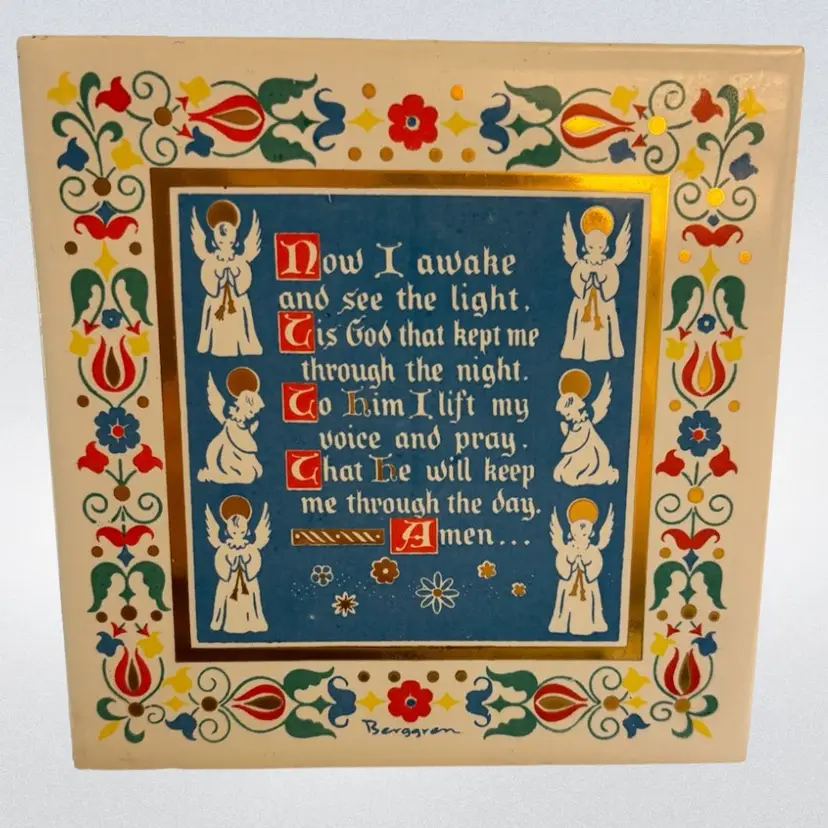 Now I awake
and see the light.
Tis God that kept me
through the night.
To him I lift my
voice and pray.
That he will keep
me through the day.
Amen...
Berggren